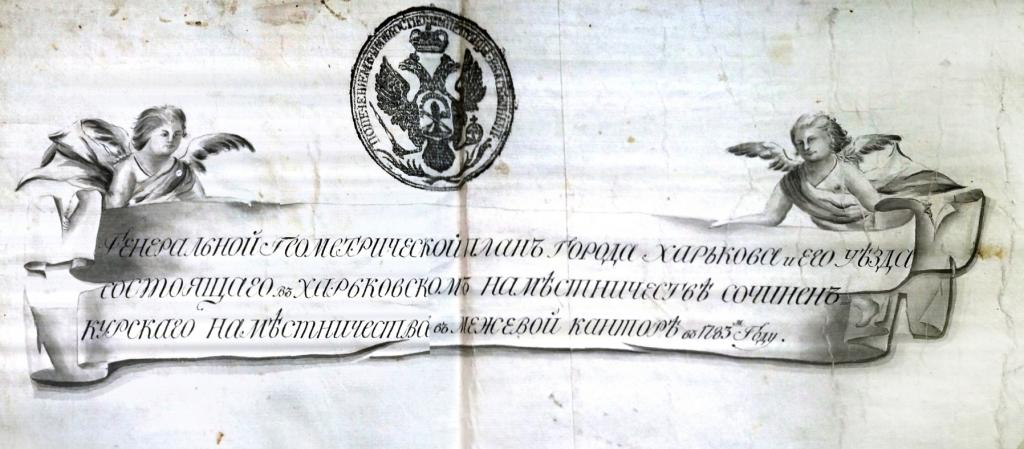 Генеральной Геометрической планъ города Харькова и его уѣзда
состоящаго въ Харьковскомъ намѣстничествѣ сочиненъ
курскаго намѣстничества въ межевой канторѣ въ 1785ᵐ Году.